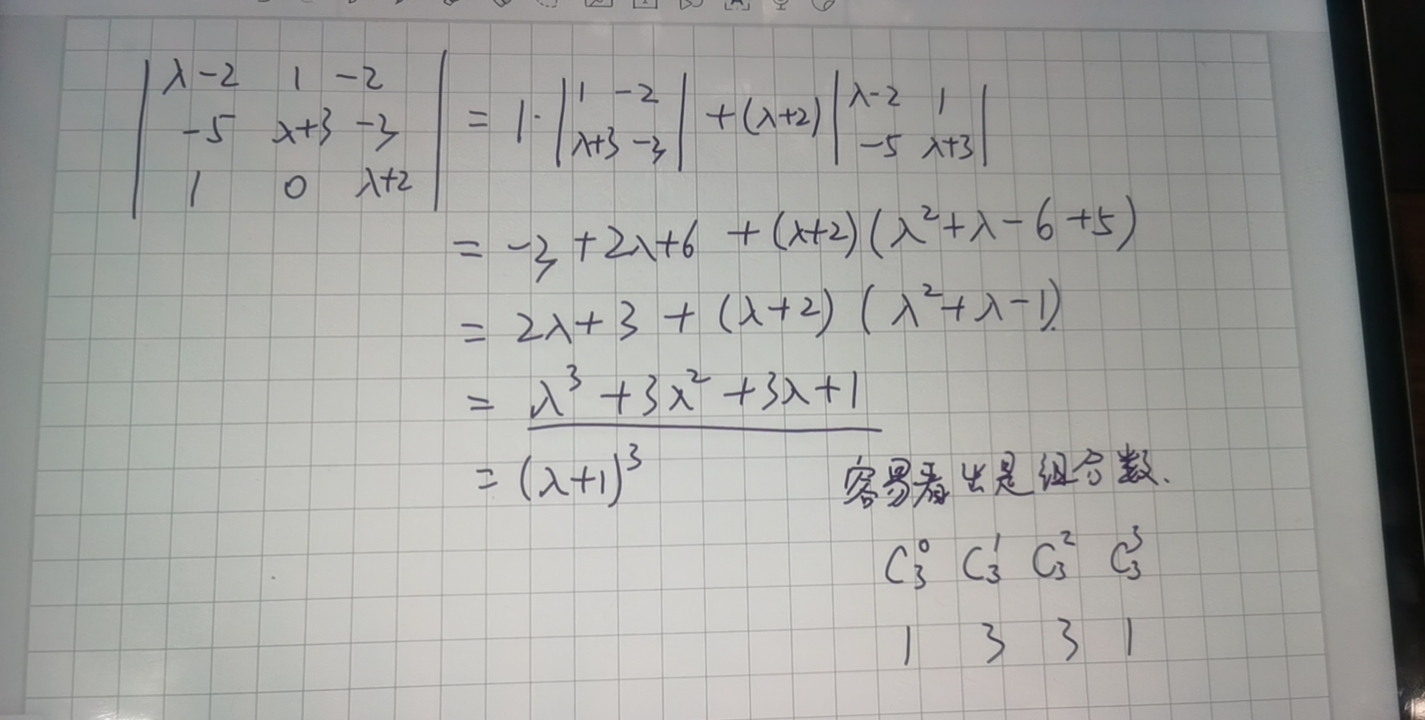 |λ-2 1 -2| = 1·|1 -2| +(λ+2)|λ-2 1|
|-5 λ+3 -3| |λ+3 -3| |-5 λ+3|
|1 0 λ+2|
= -3+2λ+6 +(λ+2)(λ²+λ-6+5)
= 2λ+3 + (λ+2)(λ²+λ-1)
= λ³+3λ²+3λ+1
= (λ+1)³ 容易看出是组合数.
C₃⁰ C₃¹ C₃² C₃³
1 3 3 1